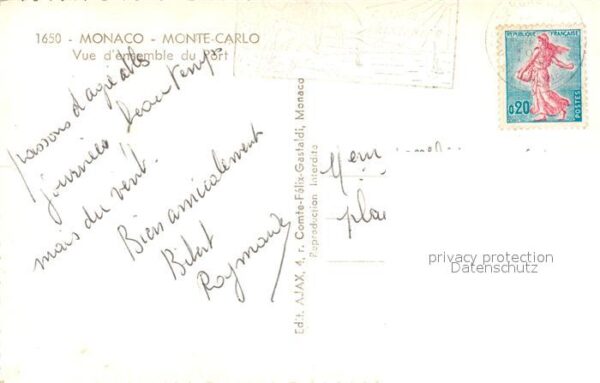 1650 - MONACO - MONTE-CARLO
Vue d'ensemble du Port
passons d'agréables
journées beau temps
mais du vent.
Bien amicalement
Raymonde
Edit. AJAX, 4, r. Comte-Félix-Gastaldi, Monaco
Reproduction Interdite
REPUBLIQUE FRANÇAISE
0,20
POSTES
pla
privacy protection
Datenschutz